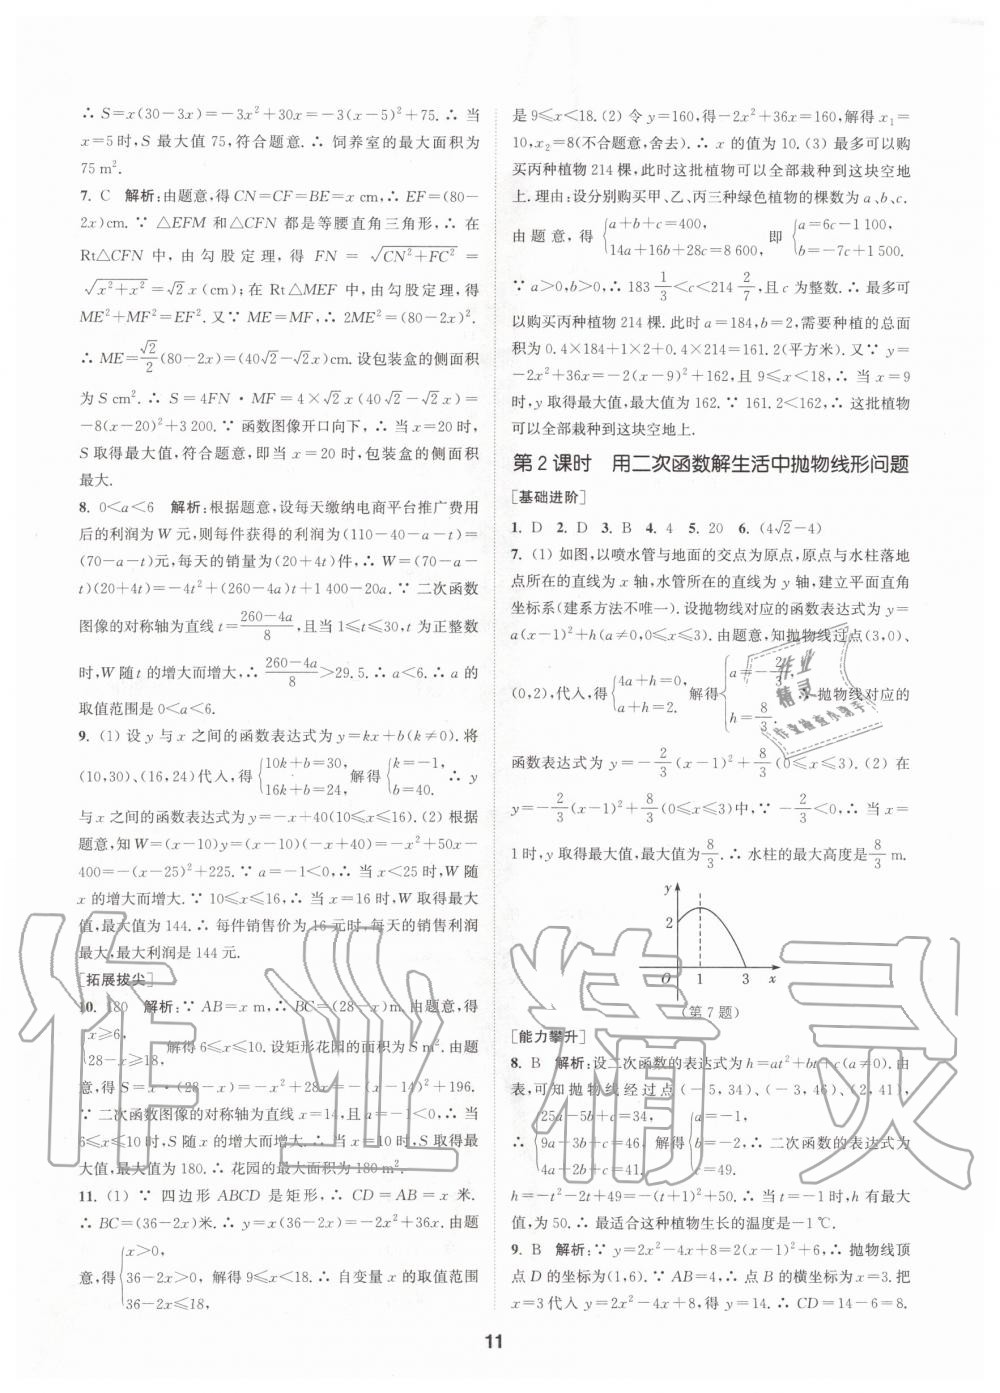 ∴ S=x(30-3x)=-3x²+30x=-3(x-5)²+75.∴ 当
x=5时,S 最大值 75,符合题意.∴ 饲养室的最大面积为
75 m².
7. C 解析:由题意,得 CN=CF=BE=x cm,∴ EF=(80-
2x)cm.∵ △EFM 和△CFN 都是等腰直角三角形,∴ 在
Rt△CFN 中,由勾股定理,得 FN=√(CN²+FC²)=
√(x²+x²)=√2x(cm);在 Rt△MEF 中,由勾股定理,得
ME²+MF²=EF².又∵ ME=MF,∴ 2ME²=(80-2x)².
∴ ME=√2/2(80-2x)=(40√2-√2x)cm.设包装盒的侧面积
为S cm².∴ S=4FN·MF=4×√2x(40√2-√2x)=
-8(x-20)²+3 200.∵ 函数图像开口向下,∴ 当x=20时,
S取得最大值,符合题意,即当 x=20 时,包装盒的侧面积
最大.
8. 0<a<6 解析:根据题意,设每天缴纳电商平台推广费用
后的利润为W 元,则每件获得的利润为(110-40-a-t)=
(70-a-t)元,每天的销量为(20+4t)件,∴ W=(70-a-
t)(20+4t)=-4t²+(260-4a)t+1 400-20a.∵ 二次函数
图像的对称轴为直线t=(260-4a)/8,且当1≤t≤30,t 为正整数
时,W随t 的增大而增大,∴ (260-4a)/8>29.5.∴ a<6.∴ a 的
取值范围是0<a<6.
9. (1) 设 y 与 x 之间的函数表达式为y=kx+b(k≠0).将
(10,30)、(16,24)代入,得{10k+b=30, 16k+b=24, 解得{k=-1, b=40. ∴ y
与x 之间的函数表达式为y=-x+40(10≤x≤16).(2) 根据
题意,知W=(x-10)y=(x-10)(-x+40)=-x²+50x-
400=-(x-25)²+225.∵ a=-1<0,∴ 当x<25时,W随
x的增大而增大.∵ 10≤x≤16,∴ 当 x=16时,W取得最大
值,最大值为 144.∴ 每件销售价为 16 元时,每天的销售利润
最大,最大利润是 144 元.
[拓展拔尖]
10. 180 解析:∵ AB=x m,∴ BC=(28-x)m.由题意,得
{x≥6, 28-x≥18, 解得6≤x≤10.设矩形花园的面积为S m².由题
意,得S=x·(28-x)=-x²+28x=-(x-14)²+196.
∵ 二次函数图像的对称轴为直线x=14,且a=-1<0,∴ 当
6≤x≤10时,S随x 的增大而增大.∴ 当x=10时,S取得最
大值,最大值为180.∴ 花园的最大面积为180 m².
11. (1) ∵ 四边形 ABCD 是矩形,∴ CD=AB=x 米.
∴ BC=(36-2x)米.∴ y=x(36-2x)=-2x²+36x.由题
意,得{x>0, 36-2x>0, 36-2x≤18, 解得9≤x<18.∴ 自变量x 的取值范围
是9≤x<18.(2) 令y=160,得-2x²+36x=160,解得x₁=
10,x₂=8(不合题意,舍去).∴ x的值为10.(3) 最多可以购
买丙种植物214棵,此时这批植物可以全部栽种到这块空地
上.理由:设分别购买甲、乙、丙三种绿色植物的棵数为a、b、c.
由题意,得{a+b+c=400, 14a+16b+28c=8 600, 即{a=6c-1 100, b=-7c+1 500.
∵ a>0,b>0,∴ 183 1/3<c<214 2/7,且c为整数.∴ 最多可
以购买丙种植物214棵.此时a=184,b=2,需要种植的总面
积为0.4×184+1×2+0.4×214=161.2(平方米).又∵ y=
-2x²+36x=-2(x-9)²+162,且 9≤x<18,∴ 当 x=9
时,y 取得最大值,最大值为 162.∵ 161.2<162,∴ 这批植物
可以全部栽种到这块空地上.
第2课时 用二次函数解生活中抛物线形问题
[基础进阶]
1. D 2. D 3. B 4. 4 5. 20 6. (4√2-4)
7. (1) 如图,以喷水管与地面的交点为原点,原点与水柱落地
点所在的直线为x 轴,水管所在的直线为y轴,建立平面直角
坐标系(建系方法不唯一).设抛物线对应的函数表达式为y=
a(x-1)²+h(a≠0,0≤x≤3).由题意,知抛物线过点(3,0)、
(0,2),代入,得{4a+h=0, a+h=2. 解得{a=-2/3, h=8/3. ∴ 抛物线对应的
函数表达式为y=-2/3(x-1)²+8/3(0≤x≤3).(2) 在
y=-2/3(x-1)²+8/3(0≤x≤3)中,∵ -2/3<0,∴ 当 x=
1时,y取得最大值,最大值为8/3.∴ 水柱的最大高度是8/3 m.
y
2
O 1 3 x
(第7题)
[能力攀升]
8. B 解析:设二次函数的表达式为h=at²+bt+c(a≠0).由
表,可知抛物线经过点(-5,34)、(-3,46)、(2,41),
∴ {25a-5b+c=34, 9a-3b+c=46, 4a+2b+c=41. 解得{a=-1, b=-2, c=49. ∴ 二次函数的表达式为
h=-t²-2t+49=-(t+1)²+50.∴ 当t=-1时,h 有最大
值,为50.∴ 最适合这种植物生长的温度是-1 ℃.
9. B 解析:∵ y=2x²-4x+8=2(x-1)²+6,∴ 抛物线顶
点D的坐标为(1,6).∵ AB=4,∴ 点B的横坐标为x=3.把
x=3代入y=2x²-4x+8,得 y=14.∴ CD=14-6=8.
11
作业精灵
作业
精灵
作业检查小助手